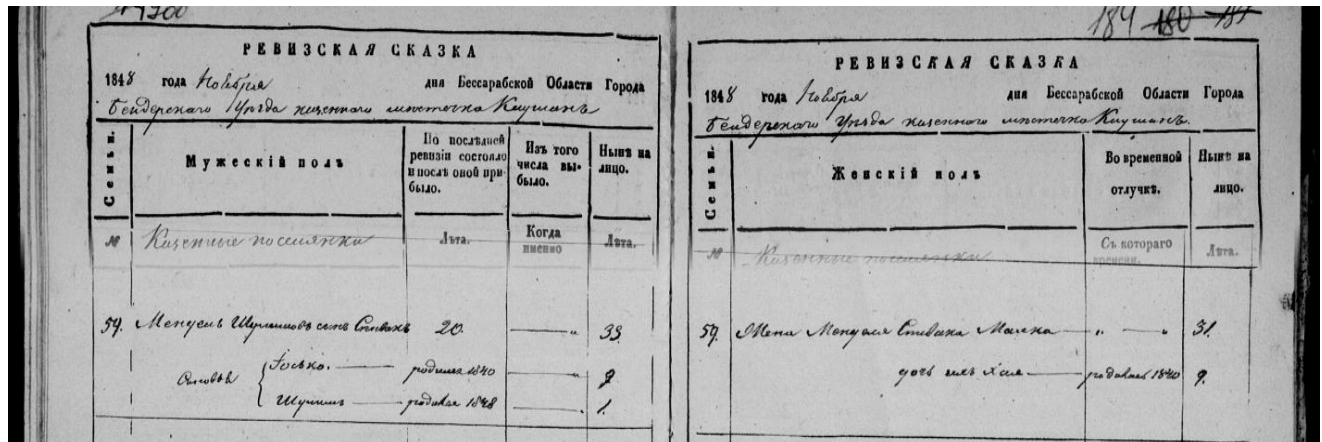 184 180 181
РЕВИЗСКАЯ СКАЗКА
1848 года Ноября дня Бессарабской Области Города
Бендерскаго Уѣзда казеннаго мѣстечка Каушанъ
Семьи.
Мужескій полъ
По послѣдней ревизіи состояло и послѣ оной прибыло.
Изъ того числа выбыло.
Нынѣ на лицо.
№
Казенные поселянки
Лѣта.
Когда именно
Лѣта.
59. Мендель Шулимовъ сынъ Спивакъ 20. — " 33
Сыновья Іосько. — родился 1840 — " 9
Шулимъ — родился 1848 — 1.
РЕВИЗСКАЯ СКАЗКА
1848 года Ноября дня Бессарабской Области Города
Бендерскаго Уѣзда казеннаго мѣстечка Каушанъ.
Семьи.
Женскій полъ
Во временной отлучкѣ.
Нынѣ на лицо.
№
Казенные поселянки
Съ котораго времени.
Лѣта.
59. Жена Менделя Спивака Малка — " — " 31.
дочь ихъ Хая — родилась 1840 9.